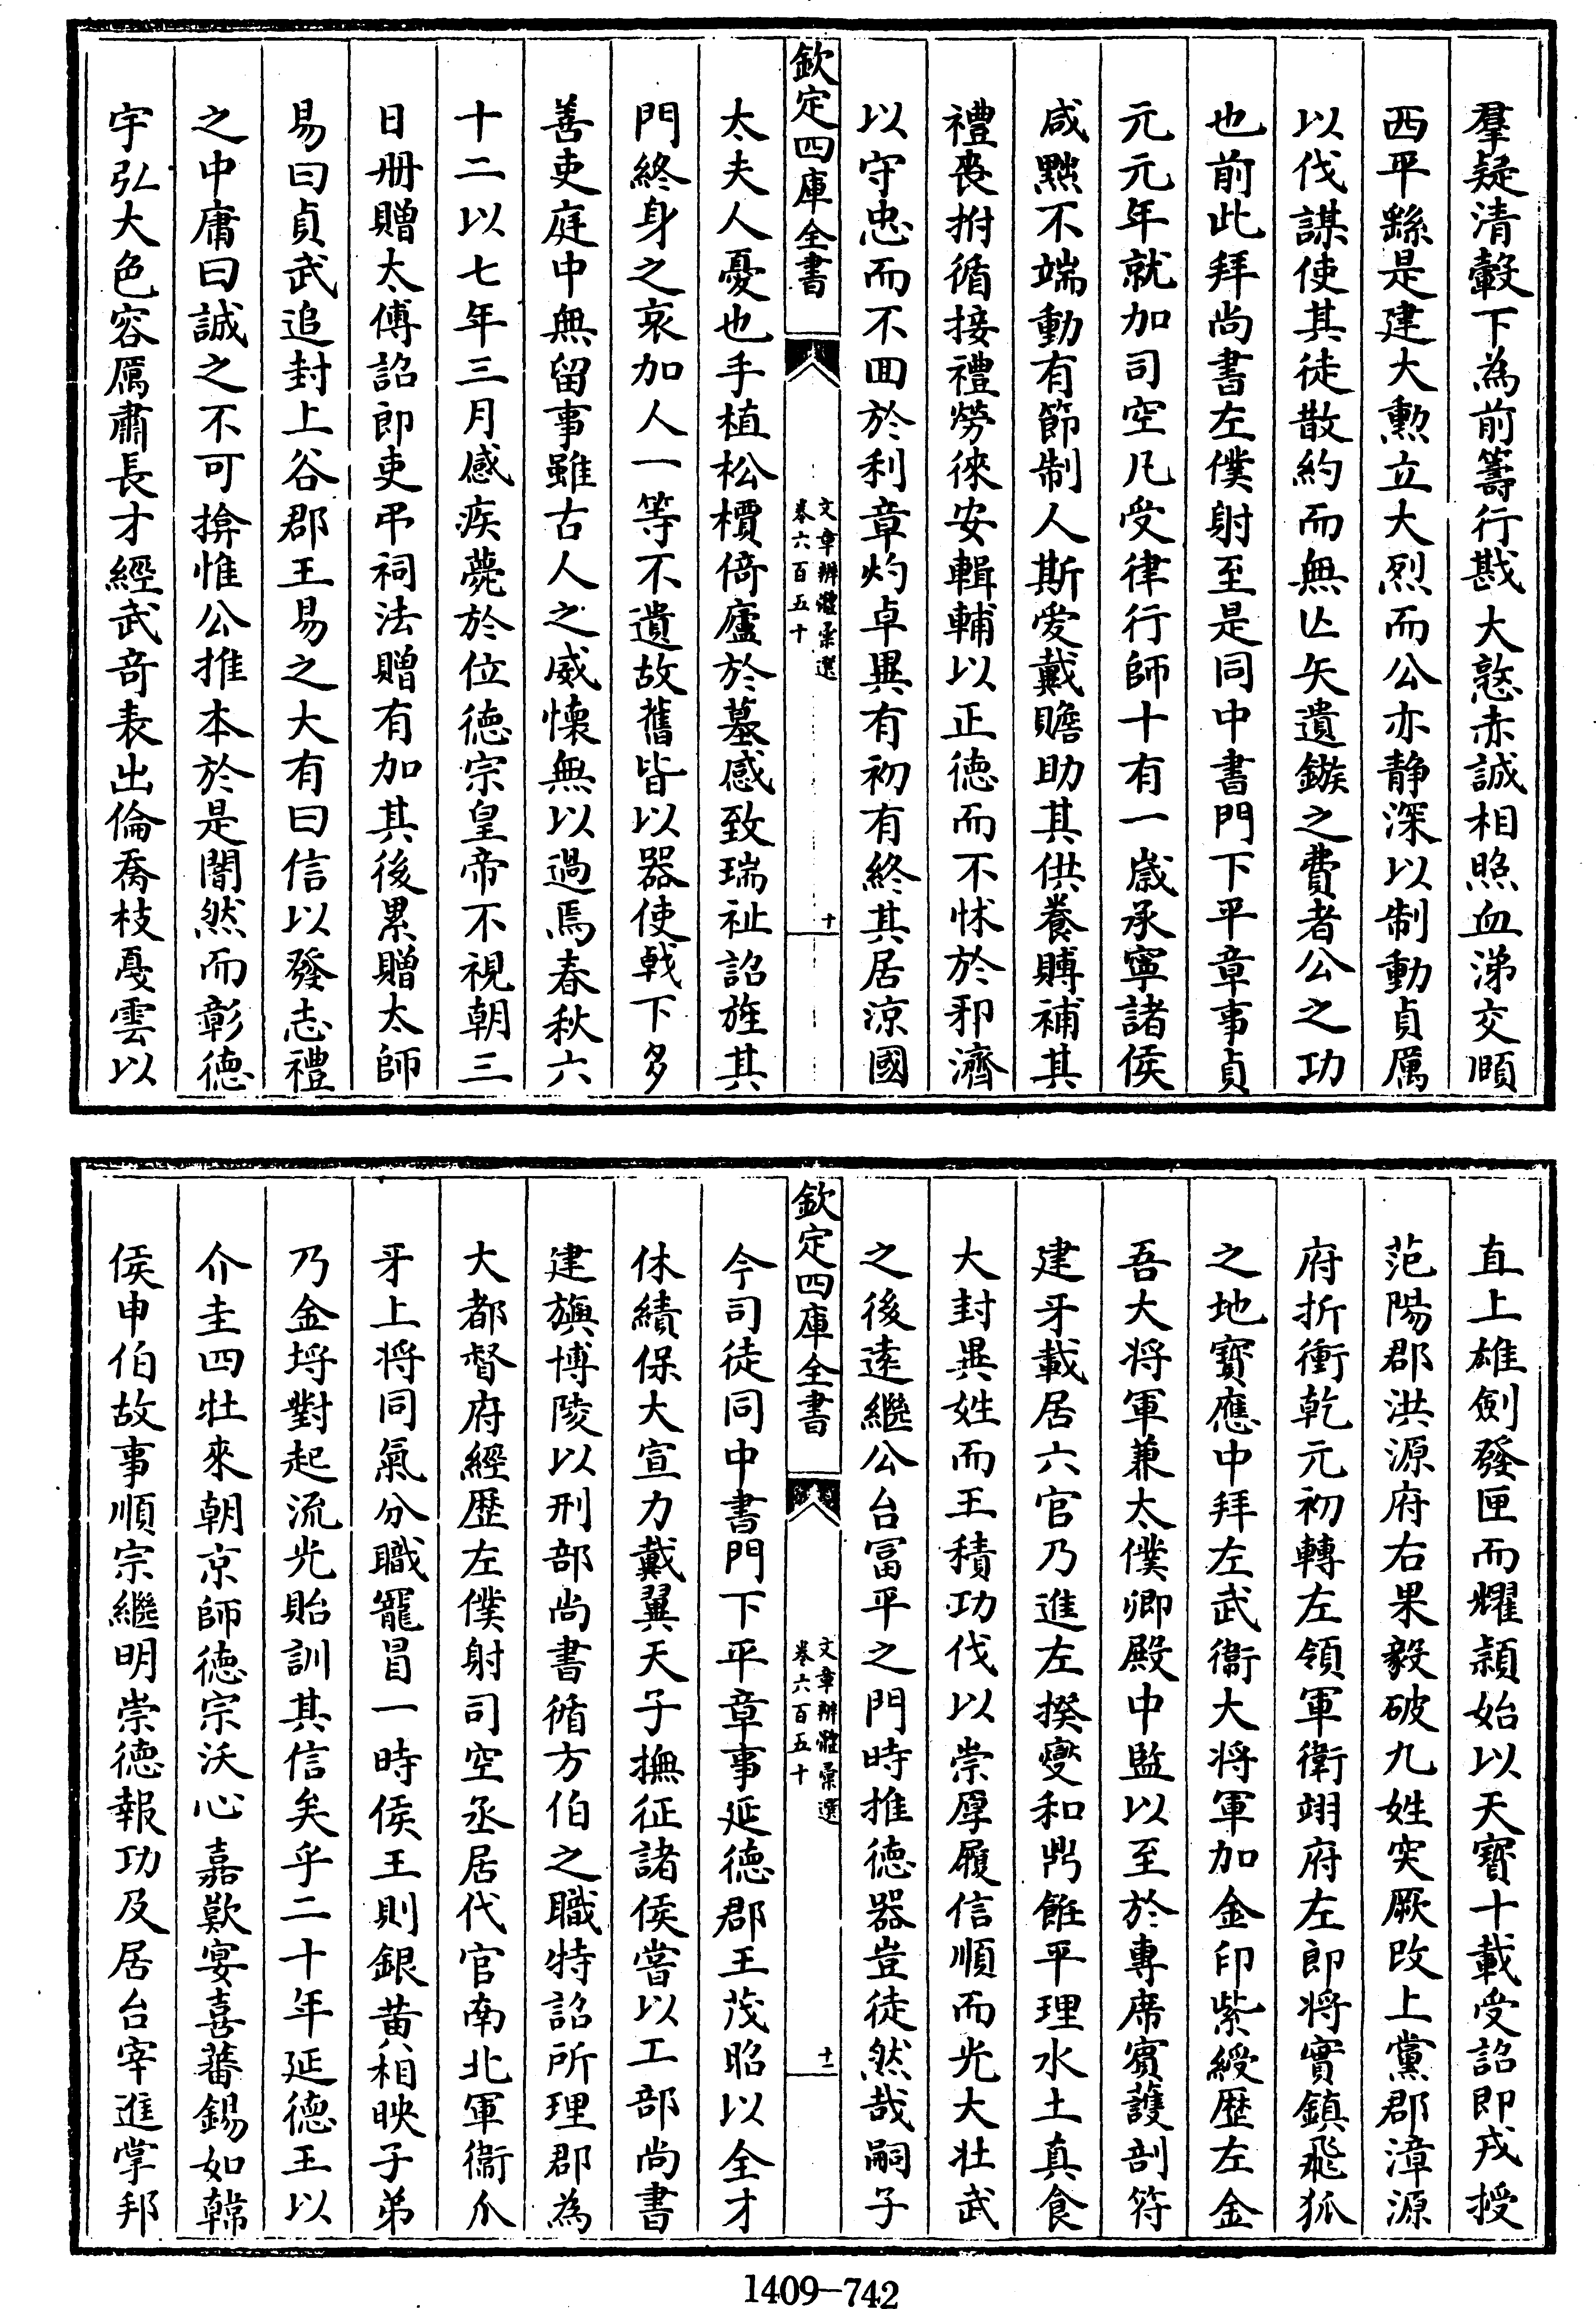 羣疑清轂下為前籌行戡大憝赤誠相照血涕交頤
西平繇是建大勲立大烈而公亦静深以制動貞厲
以伐謀使其徒散約而無亾矢遺鏃之費者公之功
也前此拜尚書左僕射至是同中書門下平章事貞
元元年就加司空凡受律行師十有一嵗承寧諸侯
咸黜不端動有節制人斯愛戴贍助其供養賻補其
禮喪拊循接禮勞徠安輯輔以正德而不怵於邪濟
以守忠而不囬於利章灼卓異有初有終其居涼國
欽定四庫全書
文章辨體彙選
卷六百五十
十
太夫人憂也手植松檟倚廬於墓感致瑞祉詔旌其
門終身之哀加人一等不遺故舊皆以器使戟下多
善吏庭中無留事雖古人之威懐無以過焉春秋六
十二以七年三月感疾薨於位徳宗皇帝不視朝三
日册贈太傅詔郎吏弔祠法賻有加其後累贈太師
易曰貞武追封上谷郡王易之大有曰信以發志禮
之中庸曰誠之不可揜惟公推本於是闇然而彰徳
宇弘大色容厲肅長才經武奇表出倫喬枝戞雲以
直上雄劍發匣而燿潁始以天寶十載受詔即戎授
范陽郡洪源府右果毅破九姓突厥改上黨郡漳源
府折衝乾元初轉左領軍衛翊府左郎将實鎮飛狐
之地寶應中拜左武衞大将軍加金印紫綬歴左金
吾大将軍兼太僕卿殿中監以至於專席賓護剖符
建牙載居六官乃進左揆燮和鼎飪平理水土真食
大封異姓而王積功伐以崇厚履信順而光大壮武
之後逺繼公台冨平之門時推徳器豈徒然哉嗣子
欽定四庫全書
文章辨體彙選
卷六百五十
十一
今司徒同中書門下平章事延徳郡王茂昭以全才
休績保大宣力戴翼天子撫征諸侯嘗以工部尚書
建旟博陵以刑部尚書循方伯之職特詔所理郡為
大都督府經歴左僕射司空丞居代官南北軍衞爪
牙上将同氣分職寵冒一時侯王則銀黄相映子弟
乃金埒對起流光貽訓其信矣乎二十年延徳王以
介圭四壮來朝京師徳宗沃心嘉歎宴喜蕃錫如韓
侯申伯故事順宗繼明崇徳報功及居台宰進掌邦
1409-742